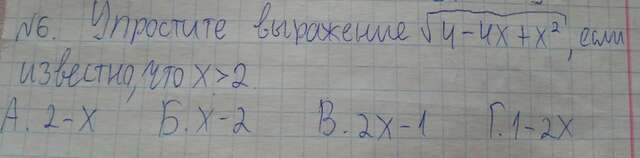 №6. Упростите выражение √4-4x+x², если
известно, что x>2.
А. 2-x Б. x-2 В. 2x-1 Г. 1-2x